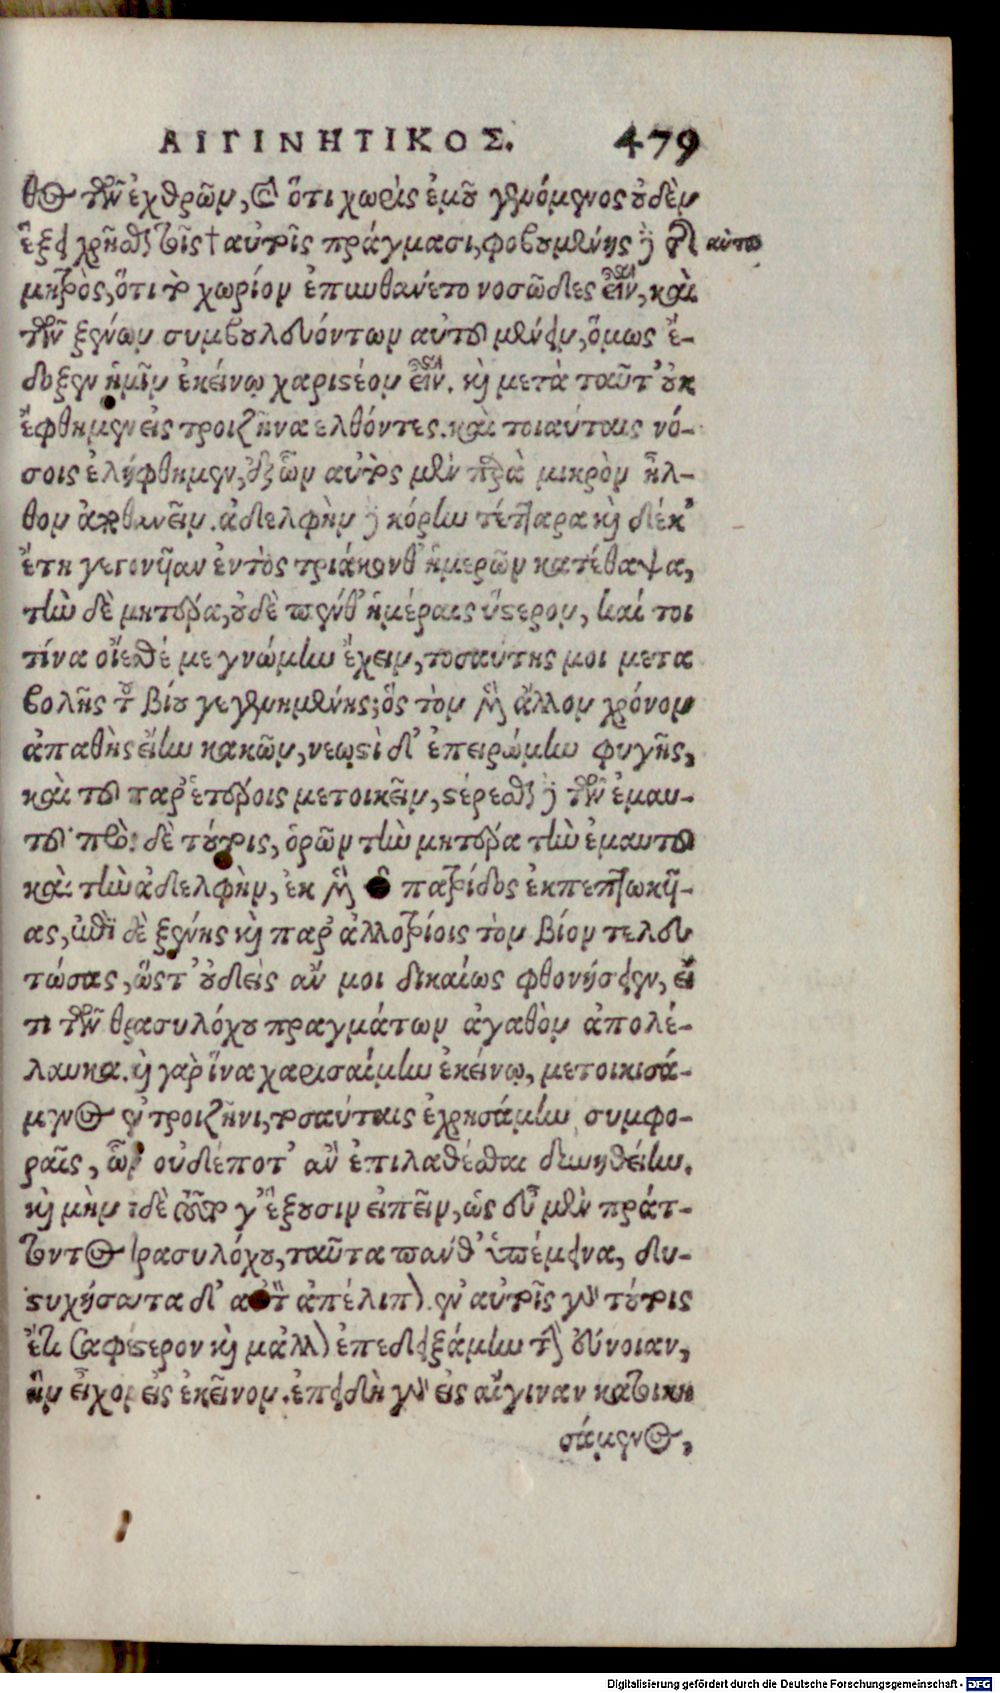 ΑΙΓΙΝΗΤΙΚΟΣ. 479
θος τῶν ἐχθρῶν, καὶ ὅτι χωρὶς ἐμοῦ γενόμενος οὐδὲν
ἕξει χρῆσθαι τοῖς † αὐτοῖς πράγμασι, φοβουμένης δὲ τῆς αὐτοῦ
μητρὸς, ὅτι τὸ χωρίον ἐπυνθάνετο νοσῶδες εἶναι, καὶ
τῶν ξένων συμβουλευόντων αὐτοῦ μένειν, ὅμως ἔ-
δοξεν ἡμῖν ἐκείνῳ χαριστέον εἶναι. καὶ μετὰ ταῦτ' οὐκ
ἔφθημεν εἰς τροιζῆνα ελθόντες. καὶ τοιαύταις νό-
σοις ἐλήφθημεν, ἐξ ὧν αὐτὸς μὲν παρὰ μικρὸν ἦλ-
θον ἀποθανεῖν. ἀδελφὴν δὲ κόρην τέτταρα καὶ δέκ'
ἔτη γεγονῆαν ἐντὸς τριάκονθ' ἡμερῶν κατέθαψα,
τὴν δὲ μητέρα, οὐδὲ πένθ' ἡμέραις ὕστερον, καί τοι
τίνα οἴεσθέ με γνώμην ἔχειν, τοσαύτης μοι μετα
βολῆς τοῦ βίου γεγενημένης; ὃς τὸν μὲν ἄλλον χρόνον
ἀπαθὴς εἴην κακῶν, νεωστὶ δ' ἐπειρώμην φυγῆς,
καὶ τοῦ παρ' ἑτέροις μετοικεῖν, στέρεσθαι δὲ τῶν ἐμαυ-
τοῦ· πρὸς δὲ τούτοις, ὁρῶν τὴν μητέρα τὴν ἐμαυτοῦ
καὶ τὴν ἀδελφὴν, ἐκ μὲν τῆς πατρίδος ἐκπεπτωκυί-
ας, ἐπὶ δὲ ξένης καὶ παρ' ἀλλοτρίοις τὸν βίον τελευ
τώσας, ὥστ' οὐδεὶς ἄν μοι δικαίως φθονήσειεν, εἴ
τι τῶν θρασυλόχου πραγμάτων ἀγαθὸν ἀπολέ-
λαυκα. καὶ γὰρ ἵνα χαρισαίμην ἐκείνῳ, μετοικισά-
μενος ἐν τροιζῆνι, τοσαύταις ἐχρησάμην συμφο-
ραῖς, ὧν οὐδέποτ' ἂν ἐπιλαθέσθαι δυνηθείην.
καὶ μὴν οὐδὲ τοῦτό γ' ἕξουσιν εἰπεῖν, ὡς εὖ μὲν πράτ-
τοντος θρασυλόχου, ταῦτα πάνθ' ὑπέμεινα, δυ-
στυχήσαντα δ' αὐτὸν ἀπέλιπον. ἐν αὐτοῖς γὰρ τούτοις
ἔτι σαφέστερον καὶ μᾶλλον ἐπεδειξάμην τὴν εὔνοιαν,
ἣν εἶχον εἰς ἐκεῖνον. ἐπειδὴ γὰρ εἰς αἴγιναν κατοικη
σάμενος,
Digitalisierung gefördert durch die Deutsche Forschungsgemeinschaft - DFG